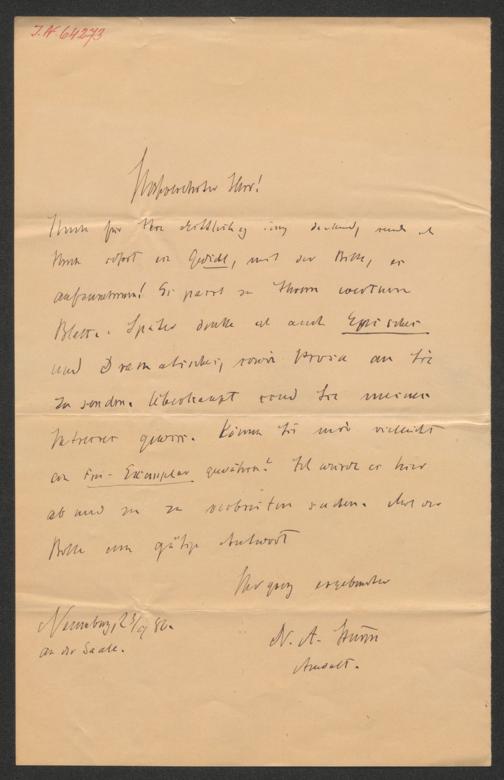 J.N 64273
Hochverehrter Herr!
Ihnen für Ihre dankend, sende ich
Ihnen sofort ein Gedicht, mit der Bitte, es
aufzunehmen! Es passt zu Ihrem werten
Blatte. Später denke ich auch Episches
und Dramatisches, sowie Prosa an Sie
zu senden. Überhaupt sind Sie meines
Interesses gewiss. Können Sie mir vielleicht
ein Frei-Exemplar gewähren? Ich würde es hier
ab und zu zu verbreiten suchen. Mit der
Bitte um gütige Antwort
Ihr ganz ergebenster
Naumburg,
an der Saale.
N. A.